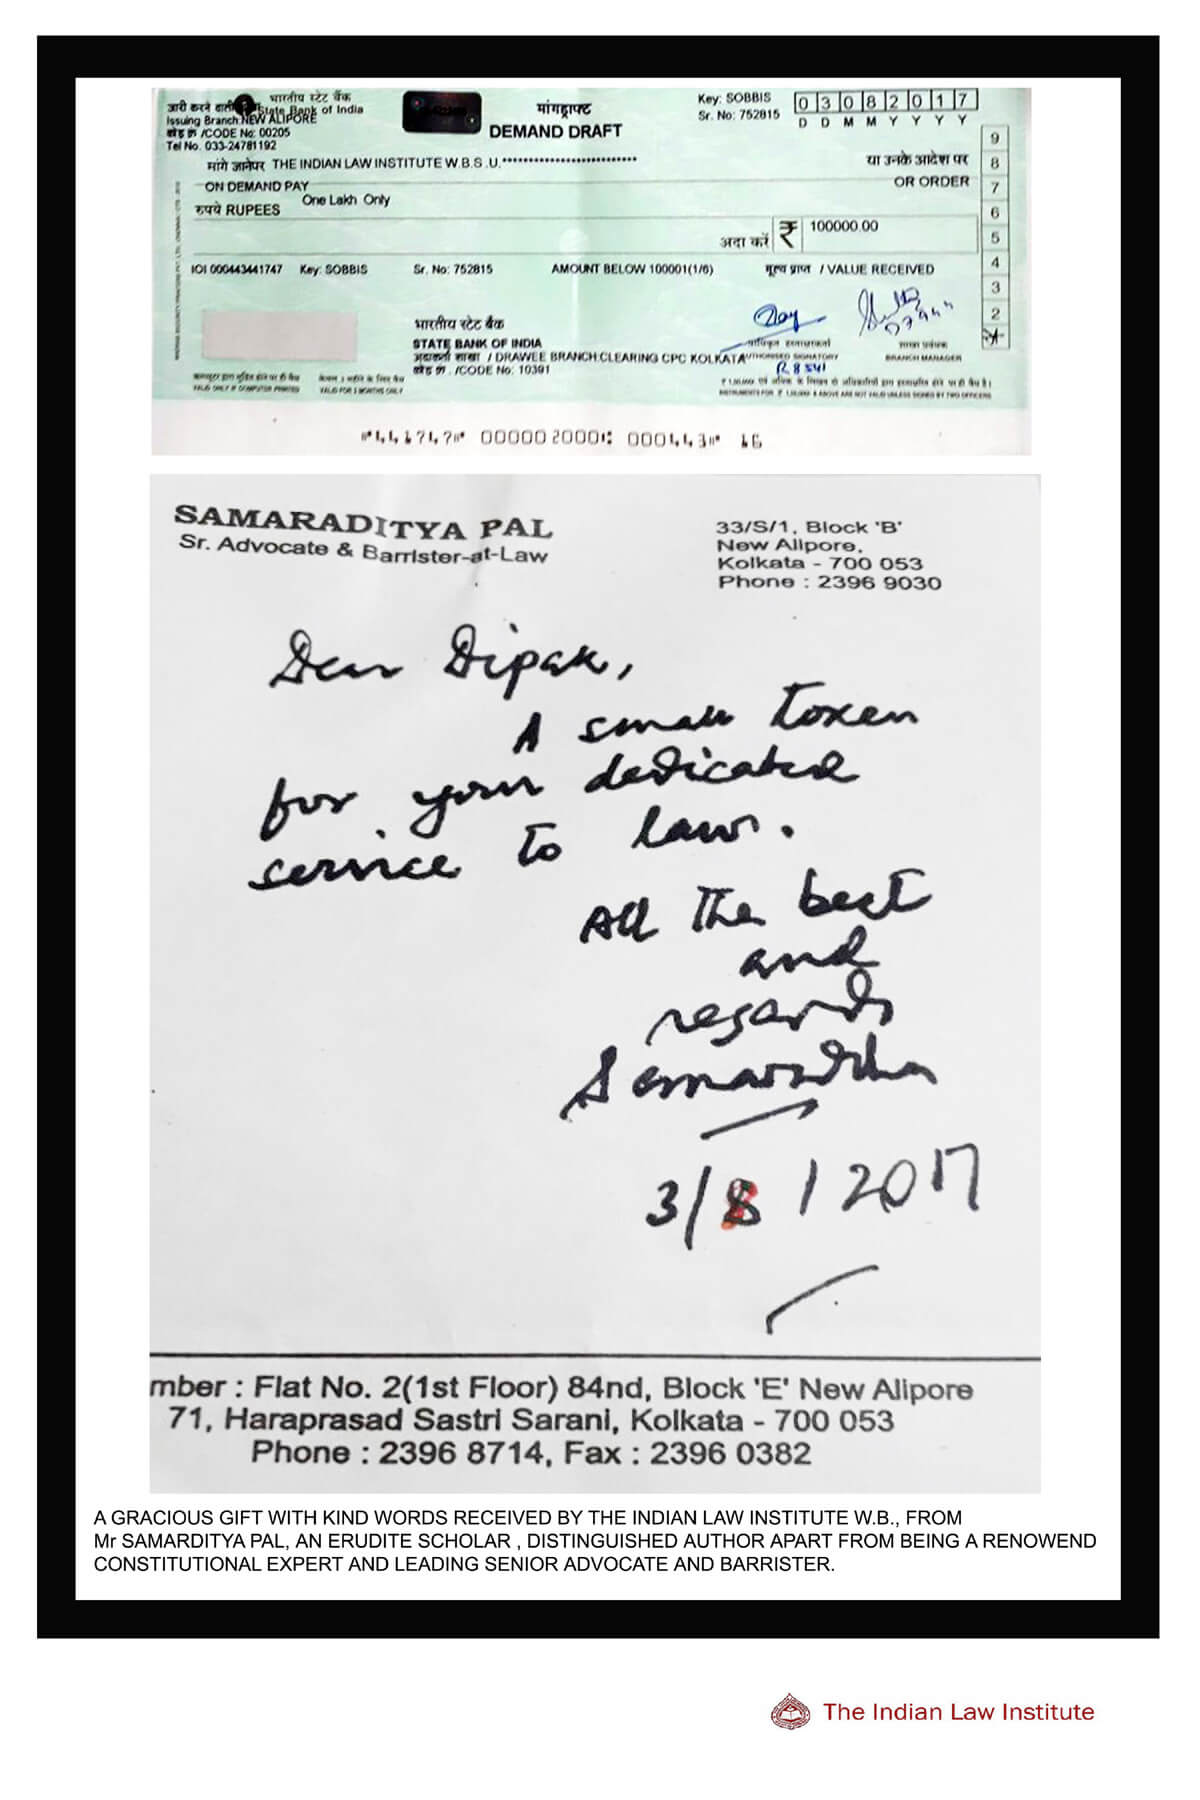 जारी करने वाली
भारतीय स्टेट बैंक
State Bank of India
Issuing Branch:NEW ALIPORE
कोड क्र /CODE No: 00205
Tel No. 033-24781192
मांगड्राफ्ट
DEMAND DRAFT
Key: SOBBIS
Sr. No: 752815
03082017
D D M M Y Y Y Y
मांगे जानेपर THE INDIAN LAW INSTITUTE W.B.S .U.***************************
या उनके आदेश पर
ON DEMAND PAY
OR ORDER
रुपये RUPEES One Lakh Only
अदा करें ₹ 100000.00
9
8
7
6
5
4
3
2
IOI 000443441747 Key: SOBBIS Sr. No: 752815 AMOUNT BELOW 100001(1/6) मूल्य प्राप्त / VALUE RECEIVED
भारतीय स्टेट बैंक
STATE BANK OF INDIA
अदाकर्ता शाखा / DRAWEE BRANCH:CLEARING CPC KOLKATA
कोड क्र . /CODE No: 10391
AUTHORISED SIGNATORY
शाखा प्रबंधक
BRANCH MANAGER
VALID ONLY IF COMPUTER PRINTED
VALID FOR 3 MONTHS ONLY
INSTRUMENTS FOR ₹ 1,50,000/- & ABOVE ARE NOT VALID UNLESS SIGNED BY TWO OFFICERS
SAMARADITYA PAL
Sr. Advocate & Barrister-at-Law
33/S/1, Block 'B'
New Alipore,
Kolkata - 700 053
Phone : 2396 9030
Dear Dipak,
A small token
for your dedicated
service to law.
All the best
and
regards
Samaraditya
3/8/2017
mber : Flat No. 2(1st Floor) 84nd, Block 'E' New Alipore
71, Haraprasad Sastri Sarani, Kolkata - 700 053
Phone : 2396 8714, Fax : 2396 0382
A GRACIOUS GIFT WITH KIND WORDS RECEIVED BY THE INDIAN LAW INSTITUTE W.B., FROM
Mr SAMARDITYA PAL, AN ERUDITE SCHOLAR , DISTINGUISHED AUTHOR APART FROM BEING A RENOWEND
CONSTITUTIONAL EXPERT AND LEADING SENIOR ADVOCATE AND BARRISTER.
The Indian Law Institute